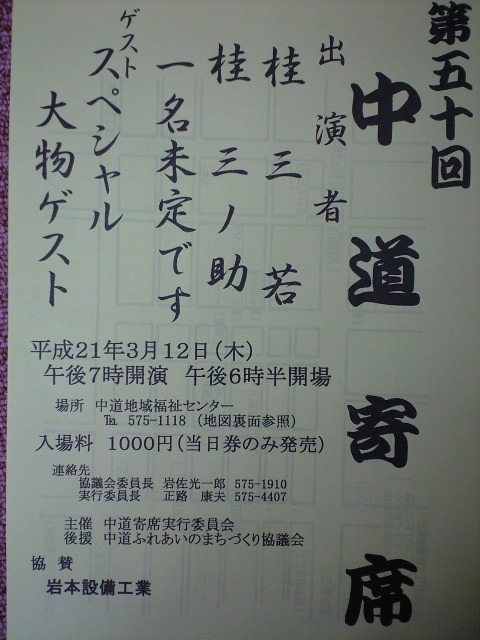 第五十回
中道寄席
出演者
桂三若
桂三ノ助
一名未定です
ゲスト
スペシャル
大物ゲスト
平成21年3月12日(木)
午後7時開演 午後6時半開場
場所 中道地域福祉センター
℡ 575-1118 (地図裏面参照)
入場料 1000円(当日券のみ発売)
連絡先
協議会委員長 岩佐光一郎 575-1910
実行委員長 正路 康夫 575-4407
主催 中道寄席実行委員会
後援 中道ふれあいのまちづくり協議会
協 賛
岩本設備工業